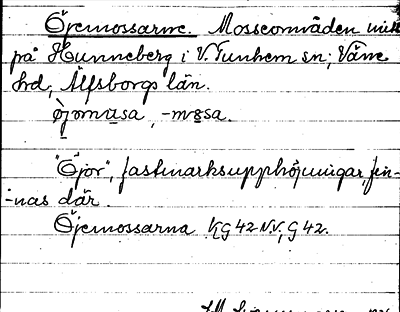 Öjemossarne. Mosseområden mitt
på Hunneberg i V. Tunhem sn; Väne
hrd, Älfsborgs län.
öjornåsa, -måsa.
"Öjor", fastmarksupphöjningar, fin-
-nas där.
Öjemossarna KG 42 N.V, G 42.